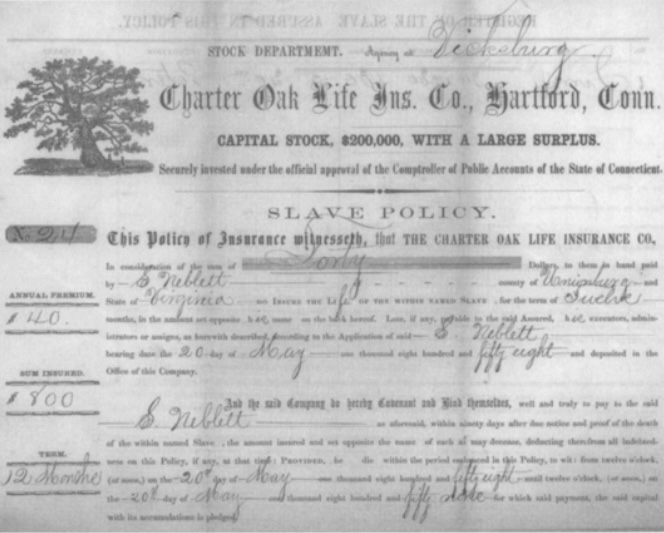 REGISTER OF THE SLAVE ASSURED IN THIS POLICY.
STOCK DEPARTMEMT. Agency at Vicksburg
Charter Oak Life Ins. Co., Hartford, Conn.
CAPITAL STOCK, $200,000, WITH A LARGE SURPLUS.
Securely invested under the official approval of the Comptroller of Public Accounts of the State of Connecticut.
SLAVE POLICY.
This Policy of Insurance witnesseth, that THE CHARTER OAK LIFE INSURANCE CO,
In consideration of the sum of Forty Dollars, to them in hand paid
by S. Neblett county of and
State of Virginia DO INSURE THE LIFE OF THE WITHIN NAMED SLAVE, for the term of Twelve
months, in the amount set opposite his name on the back hereof. Loss, if any, payable to the said Assured, his executors, admin-
istrators or assigns, as herewith described, According to the Application of said S. Neblett
bearing date the 20 day of May one thousand eight hundred and fifty eight and deposited in the
Office of this Company.
And the said Company do hereby Covenant and Bind themselves, well and truly to pay to the said
S. Neblett as aforesaid, within ninety days after due notice and proof of the death
of the within named Slave, the amount insured and set opposite the name of each as may decease, deducting therefrom all indebted-
ness on this Policy, if any, at that time: PROVIDED, he die within the period embraced in this Policy, to wit: from twelve o'clock,
(at noon,) on the 20th day of May one thousand eight hundred and fifty eight until twelve o'clock, (at noon,) on
the 20th day of May one thousand eight hundred and fifty nine for which said payment, the said capital
with its accumulations is pledged.
ANNUAL PREMIUM.
$ 40.
SUM INSURED.
$ 800
TERM.
12 Months